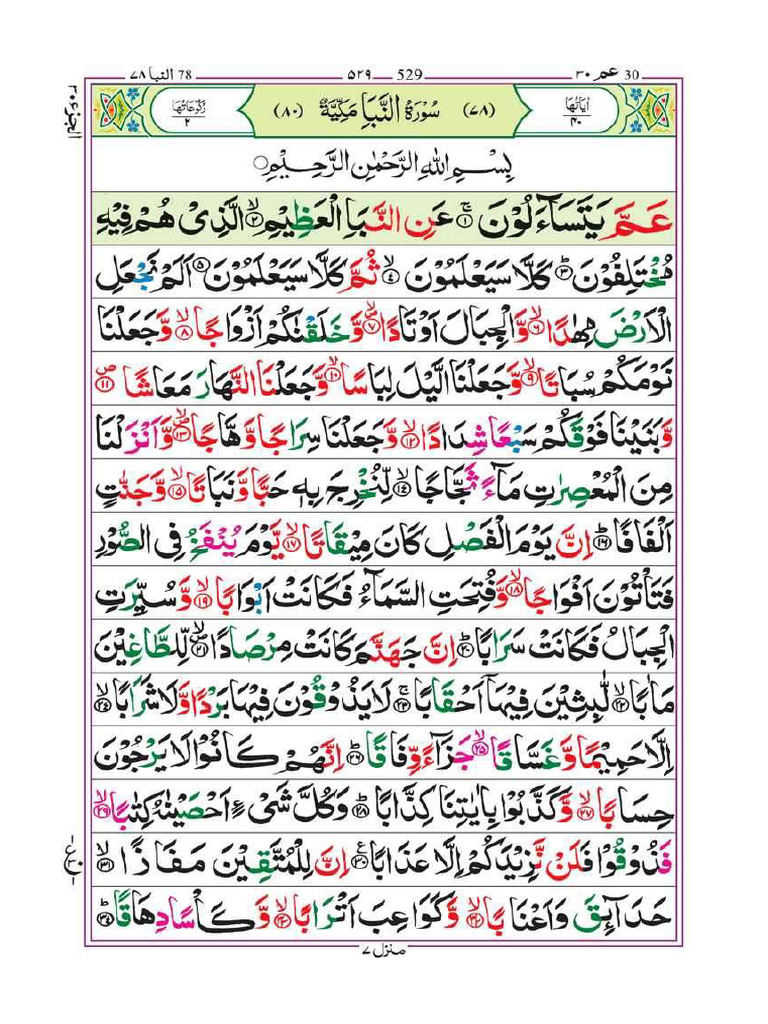 30 عم ۳۰ 529 ۵۲۹ 78 النبا ۷۸
الجزء ۳۰
اٰیاتها ۴۰ (۷۸) سُوْرَةُ النَّبَاِ مَكِّیَّةٌ (۸۰) رکوعاتها ۲
بِسْمِ اللّٰهِ الرَّحْمٰنِ الرَّحِیْمِ
عَمَّ یَتَسَآءَلُوْنَ ۚ﴿۱﴾ عَنِ النَّبَاِ الْعَظِیْمِ ۙ﴿۲﴾ الَّذِیْ هُمْ فِیْهِ
مُخْتَلِفُوْنَ ؕ﴿۳﴾ كَلَّا سَیَعْلَمُوْنَ ۙ﴿۴﴾ ثُمَّ كَلَّا سَیَعْلَمُوْنَ ﴿۵﴾ اَلَمْ نَجْعَلِ
الْاَرْضَ مِهٰدًا ۙ﴿۶﴾ وَّ الْجِبَالَ اَوْتَادًا ۙ﴿۷﴾ وَّ خَلَقْنٰكُمْ اَزْوَاجًا ۙ﴿۸﴾ وَّ جَعَلْنَا
نَوْمَكُمْ سُبَاتًا ۙ﴿۹﴾ وَّ جَعَلْنَا الَّیْلَ لِبَاسًا ۙ﴿۱۰﴾ وَّ جَعَلْنَا النَّهَارَ مَعَاشًا ۪﴿۱۱﴾
وَّ بَنَیْنَا فَوْقَكُمْ سَبْعًا شِدَادًا ۙ﴿۱۲﴾ وَّ جَعَلْنَا سِرَاجًا وَّهَّاجًا ۪ۙ﴿۱۳﴾ وَّ اَنْزَلْنَا
مِنَ الْمُعْصِرٰتِ مَآءً ثَجَّاجًا ۙ﴿۱۴﴾ لِّنُخْرِجَ بِهٖ حَبًّا وَّ نَبَاتًا ۙ﴿۱۵﴾ وَّ جَنّٰتٍ
اَلْفَافًا ؕ﴿۱۶﴾ اِنَّ یَوْمَ الْفَصْلِ كَانَ مِیْقَاتًا ۙ﴿۱۷﴾ یَّوْمَ یُنْفَخُ فِی الصُّوْرِ
فَتَاْتُوْنَ اَفْوَاجًا ۙ﴿۱۸﴾ وَّ فُتِحَتِ السَّمَآءُ فَكَانَتْ اَبْوَابًا ۙ﴿۱۹﴾ وَّ سُیِّرَتِ
الْجِبَالُ فَكَانَتْ سَرَابًا ؕ﴿۲۰﴾ اِنَّ جَهَنَّمَ كَانَتْ مِرْصَادًا ۪ۙ﴿۲۱﴾ لِّلطَّاغِیْنَ
مَاٰبًا ۙ﴿۲۲﴾ لّٰبِثِیْنَ فِیْهَاۤ اَحْقَابًا ۚ﴿۲۳﴾ لَا یَذُوْقُوْنَ فِیْهَا بَرْدًا وَّ لَا شَرَابًا ۙ﴿۲۴﴾
اِلَّا حَمِیْمًا وَّ غَسَّاقًا ۙ﴿۲۵﴾ جَزَآءً وِّفَاقًا ؕ﴿۲۶﴾ اِنَّهُمْ كَانُوْا لَا یَرْجُوْنَ
حِسَابًا ۙ﴿۲۷﴾ وَّ كَذَّبُوْا بِاٰیٰتِنَا كِذَّابًا ؕ﴿۲۸﴾ وَ كُلَّ شَیْءٍ اَحْصَیْنٰهُ كِتٰبًا ۙ﴿۲۹﴾
فَذُوْقُوْا فَلَنْ نَّزِیْدَكُمْ اِلَّا عَذَابًا ﴿۳۰﴾ اِنَّ لِلْمُتَّقِیْنَ مَفَازًا ۙ﴿۳۱﴾
حَدَآىِٕقَ وَ اَعْنَابًا ۙ﴿۳۲﴾ وَّ كَوَاعِبَ اَتْرَابًا ۙ﴿۳۳﴾ وَّ كَاْسًا دِهَاقًا ؕ﴿۳۴﴾
منزل ۷